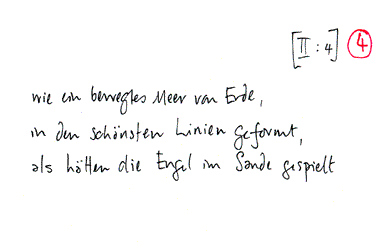 [II : 4] 4
wie ein bewegtes Meer von Erde,
in den schönsten Linien geformt,
als hätten die Engel im Sande gespielt